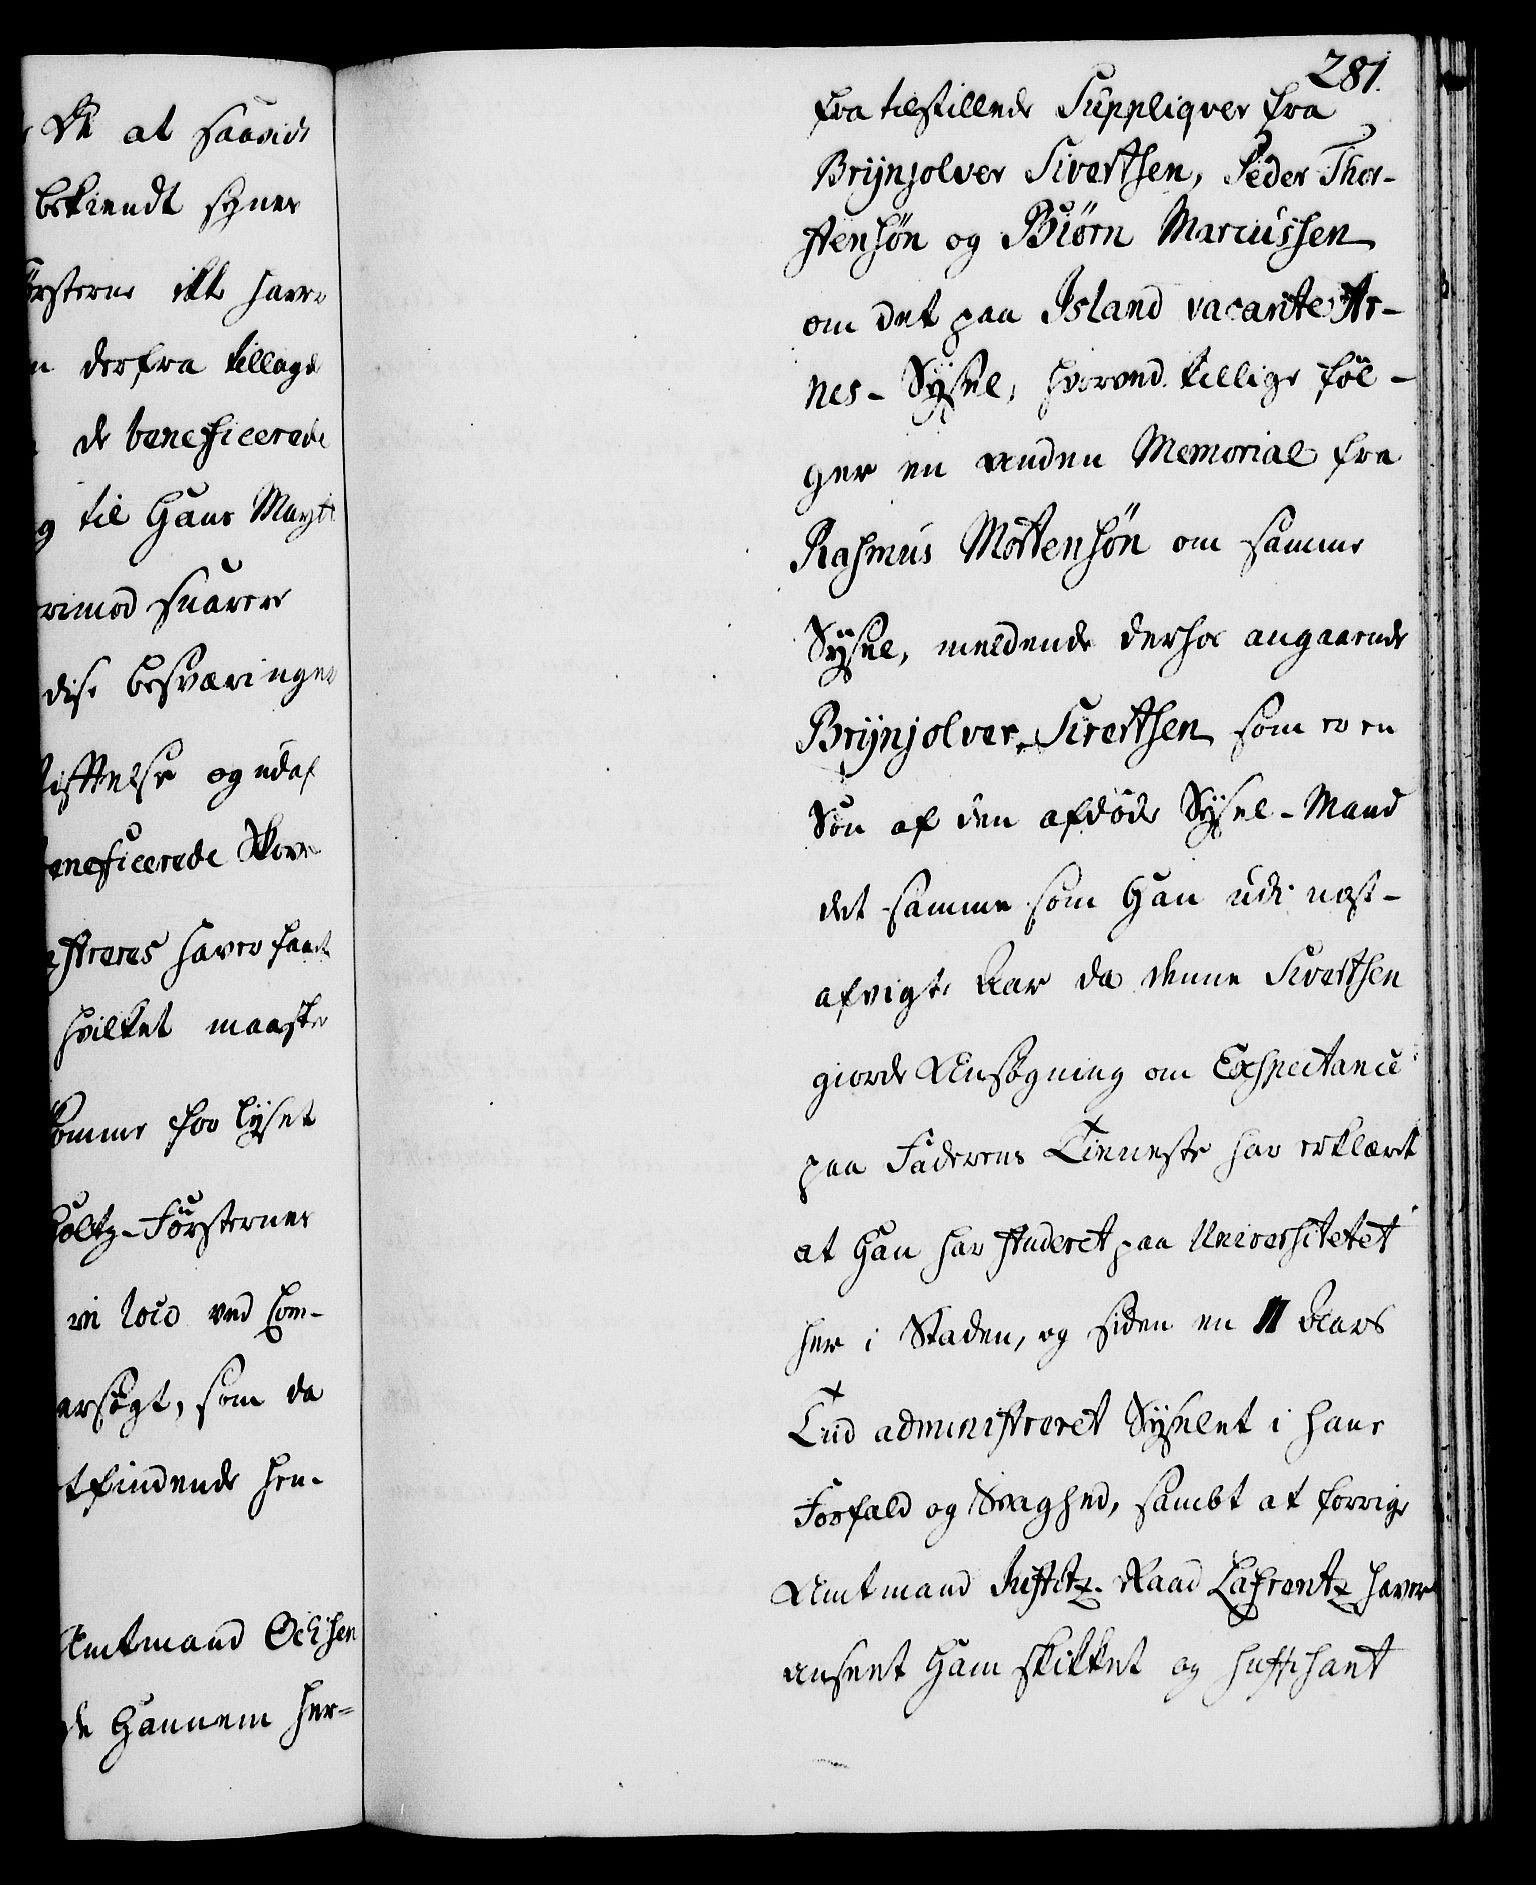 Dk at saavidt
bekiendt synes
örsterne ikke haver
n derfra tillagt
de beneficerede
g til Hans Mayts
rimod svarer
dise besværinger
tiftelse og udaf
eneficerede Skove
streres haver faaet
hvilket maaske
komme for lyset
holtz-Försternes
in loco ved Com-
ersøgt, som da
tfindende hen-
Amtmand Ochsen
de Hannem her-
281.
fra tilstillede Suppliqver fra
Brÿnjolver Sivertsen, Peder Thor-
stensøn og Biörn Marcussen
om det paa Island vacante Ar-
nes-Sÿssel, hvorved tillige föl-
ger en anden Memorial fra
Rasmus Mortensøn om samme
Sÿssel, meldende derhos angaaende
Brÿnjolver Sivertsen som er en
Sön af den afdöde Sÿssel-Mand
det samme som Han udi næst-
afvigte Aar da denne Sivertsen
giorde Ansøgning om Exspectance
paa Faderens Tieneste har erklæret
at Han har studeret paa Universitetet
her i Staden, og siden en 11 Aars
Tiid administreret Sÿsselet i hans
Forfald og Svaghed, sambt at forrige
Amtmand Justitz-Raad Lafrentz haver
anseet Ham skikket og suffisant